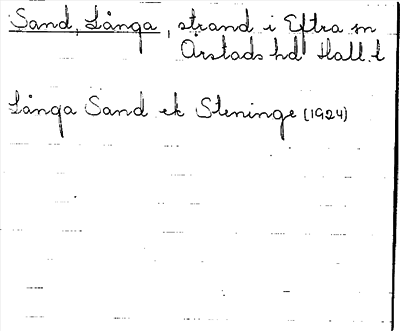 Sand, Långa, strand i Eftra sn
Årstads hd Hall. l
Långa Sand ek Steninge (1924)